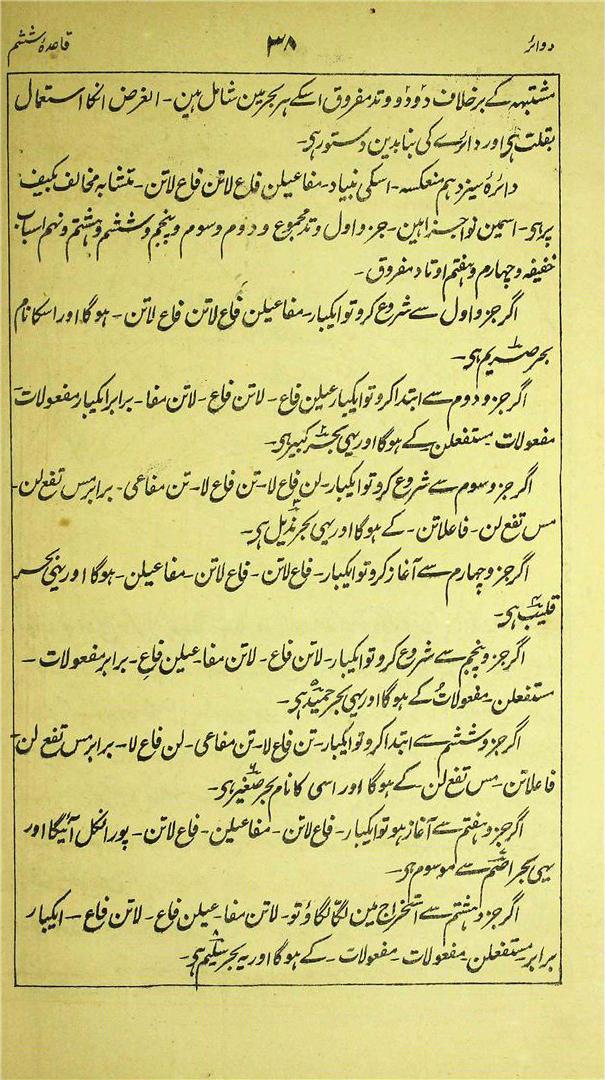 دوائر ۳۸ قاعدۂ ششم
مشتبہہ کے برخلاف دو دو وتد مفروق اسکے ہر بحر مین شامل ہین۔ الغرض انکا استعمال
بقلت ہی اور دائرے کی بنا بدین دستور ہی۔
دائرۂ سیزدہم منعکسہ۔ اسکی بنیاد۔ مفاعیلن فاع لاتن فاع لاتن۔ متشابہ مخالف بکیف
پر ہو۔ اسمین نو اجزا ہین۔ جزو اول وتد مجموع و دوم و سوم و پنجم و ششم و ہشتم و نہم اسباب
خفیفہ و چہارم و ہفتم اوتاد مفروق۔
اگر جزو اول سے شروع کرو تو ایکبار۔ مفاعیلن فاع لاتن فاع لاتن۔ ہوگا اور اسکا نام
بحر صریم ہی۔
اگر جزو دوم سے ابتدا کرو تو ایکبار عیلن فاع۔ لاتن فاع۔ لاتن مفا۔ برابر ایکبار مفعولات۔
مفعولات۔ مستفعلن۔ کے ہوگا اور یہی بحر کبیر ہی۔
اگر جزو سوم سے شروع کرو تو ایکبار۔ لن فاع لا۔ تن فاع لا۔ تن مفاعی۔ برابر مس تفع لن۔
مس تفع لن۔ فاعلاتن۔ کے ہوگا اور یہی بحر بذیل ہی۔
اگر جزو چہارم سے آغاز کرو تو ایکبار۔ فاع لاتن۔ فاع لاتن۔ مفاعیلن۔ ہوگا اور یہی بحر
قلیب ہی۔
اگر جزو پنجم سے شروع کرو تو ایکبار۔ لاتن فاع۔ لاتن مفا۔ عیلن فاع۔ برابر مفعولات۔
مستفعلن۔ مفعولاتُ کے ہوگا اور یہی بحر حمید ہی۔
اگر جزو ششم سے ابتدا کرو تو ایکبار۔ تن فاع لا۔ تن مفاعی۔ لن فاع لا۔ برابر مس تفع لن۔
فاعلاتن۔ مس تفع لن۔ کے ہوگا اور اسی کا نام بحر صغیر ہی۔
اگر جزو ہفتم سے آغاز ہو تو ایکبار۔ فاع لاتن۔ مفاعیلن۔ فاع لاتن۔ پورا نکل آئیگا اور
یہی بحر اصم سے موسوم ہی۔
اگر جزو ہشتم سے استخراج مین لگا لگاؤ تو۔ لاتن مفا۔ عیلن فاع۔ لاتن فاع۔ ایکبار
برابر مستفعلن۔ مفعولات۔ مفعولات۔ کے ہوگا اور یہ بحر سلیم ہی۔